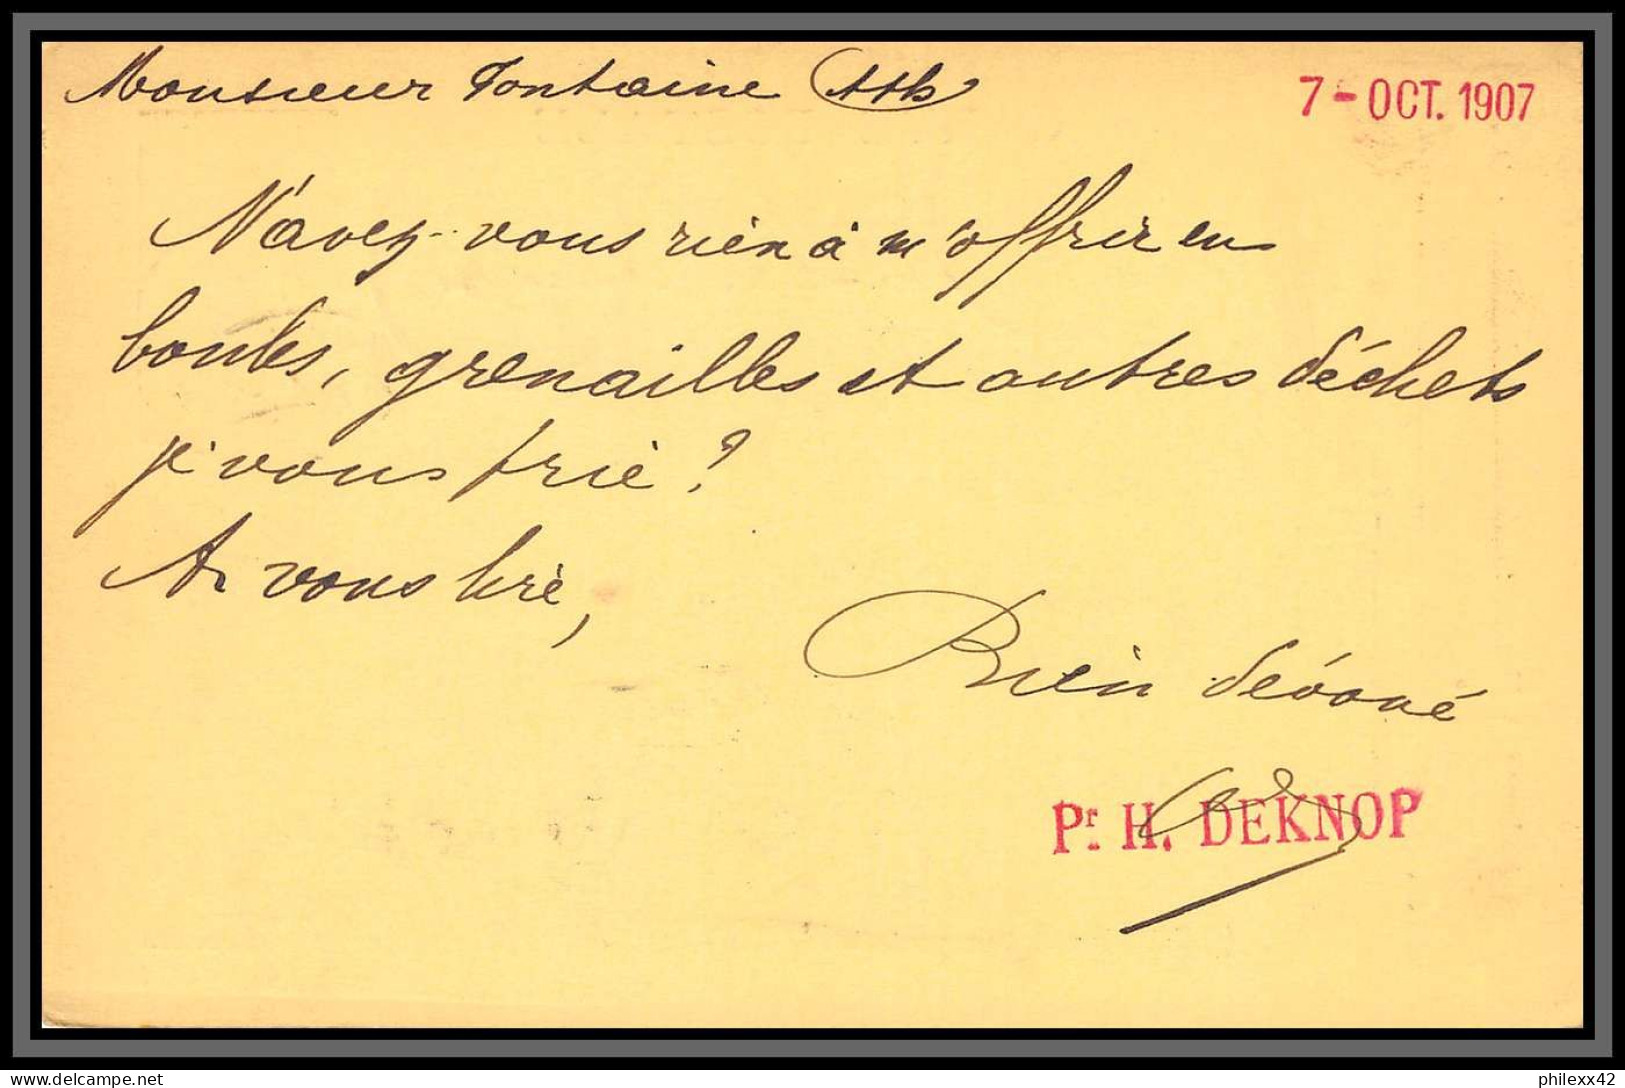 Monsieur Fontaine Ath
7 - OCT. 1907
N'avez-vous rien à m'offrir en
boules, grenailles et autres déchets
je vous prie ?
A vous lire,
Bien dévoué
Pr. H. DEKNOP
philexx42